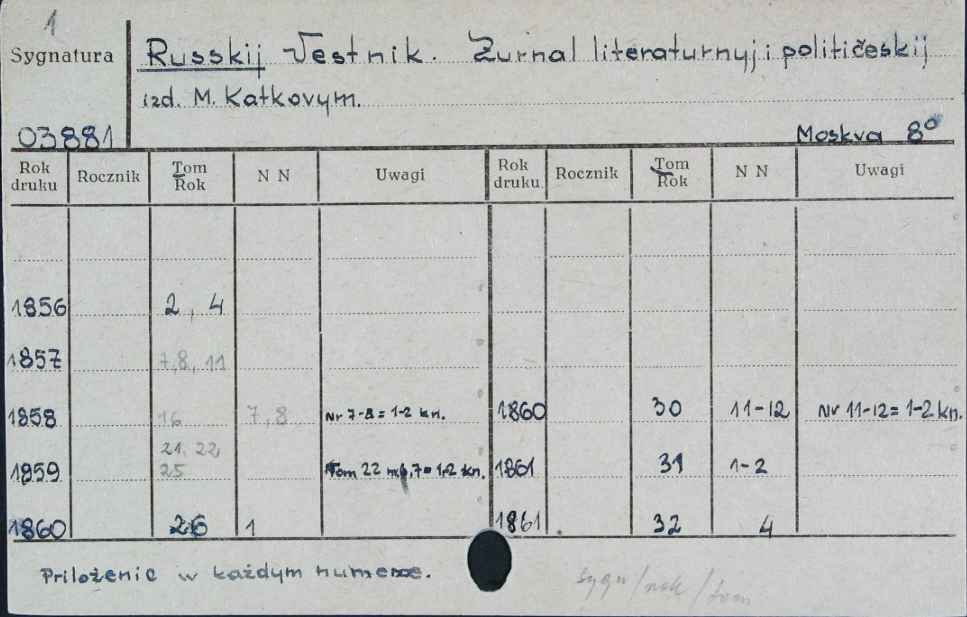 1
Sygnatura Russkij Vestnik. Žurnal literaturnyj i političeskij
izd. M. Katkovym.
03881 Moskva 8°
Rok druku Rocznik Tom Rok N N Uwagi Rok druku Rocznik Tom Rok N N Uwagi
1856 2, 4
1857 7,8, 11
1858 16 7,8 Nr 7-8 = 1-2 kn. 1860 30 11-12 Nr 11-12 = 1-2 kn.
21, 22
1859 25 Tom 22 7 = 1-2 kn. 1861 31 1-2
1860 26 1 1861 32 4
Priloženie w każdym numerze.
sygn/rok/tom